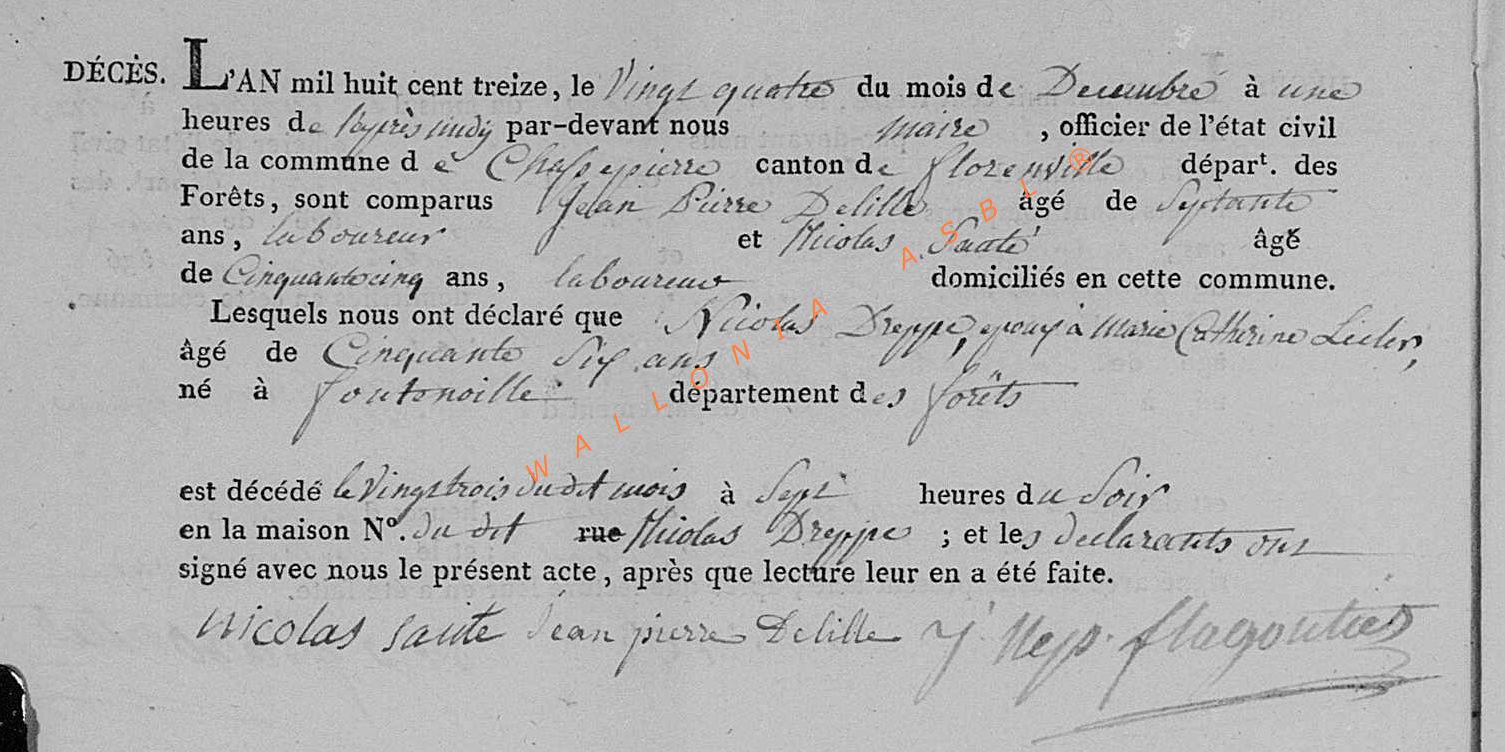 DÉCÈS. L'AN mil huit cent treize, le Vingt quatre du mois de Decembre à une
heures de l'après midy par-devant nous maire , officier de l'état civil
de la commune de Chassepierre canton de florenville départ. des
Forêts, sont comparus Jean Pierre Delille âgé de Septante
ans, laboureur et Nicolas Sauté âgé
de Cinquantecinq ans, laboureur domiciliés en cette commune.
Lesquels nous ont déclaré que Nicolas Dreppe, epoux à Marie Catherine Lecler,
âgé de Cinquante Six ans
né à fontenoille département des forêts
est décédé le Vingt trois du dit mois à Sept heures du Soir
en la maison N°. du dit rue Nicolas Dreppe ; et les declarants ont
signé avec nous le présent acte, après que lecture leur en a été faite.
nicolas saute Jean pierre Delille J. Nep.
WALLONIA ASBL ®